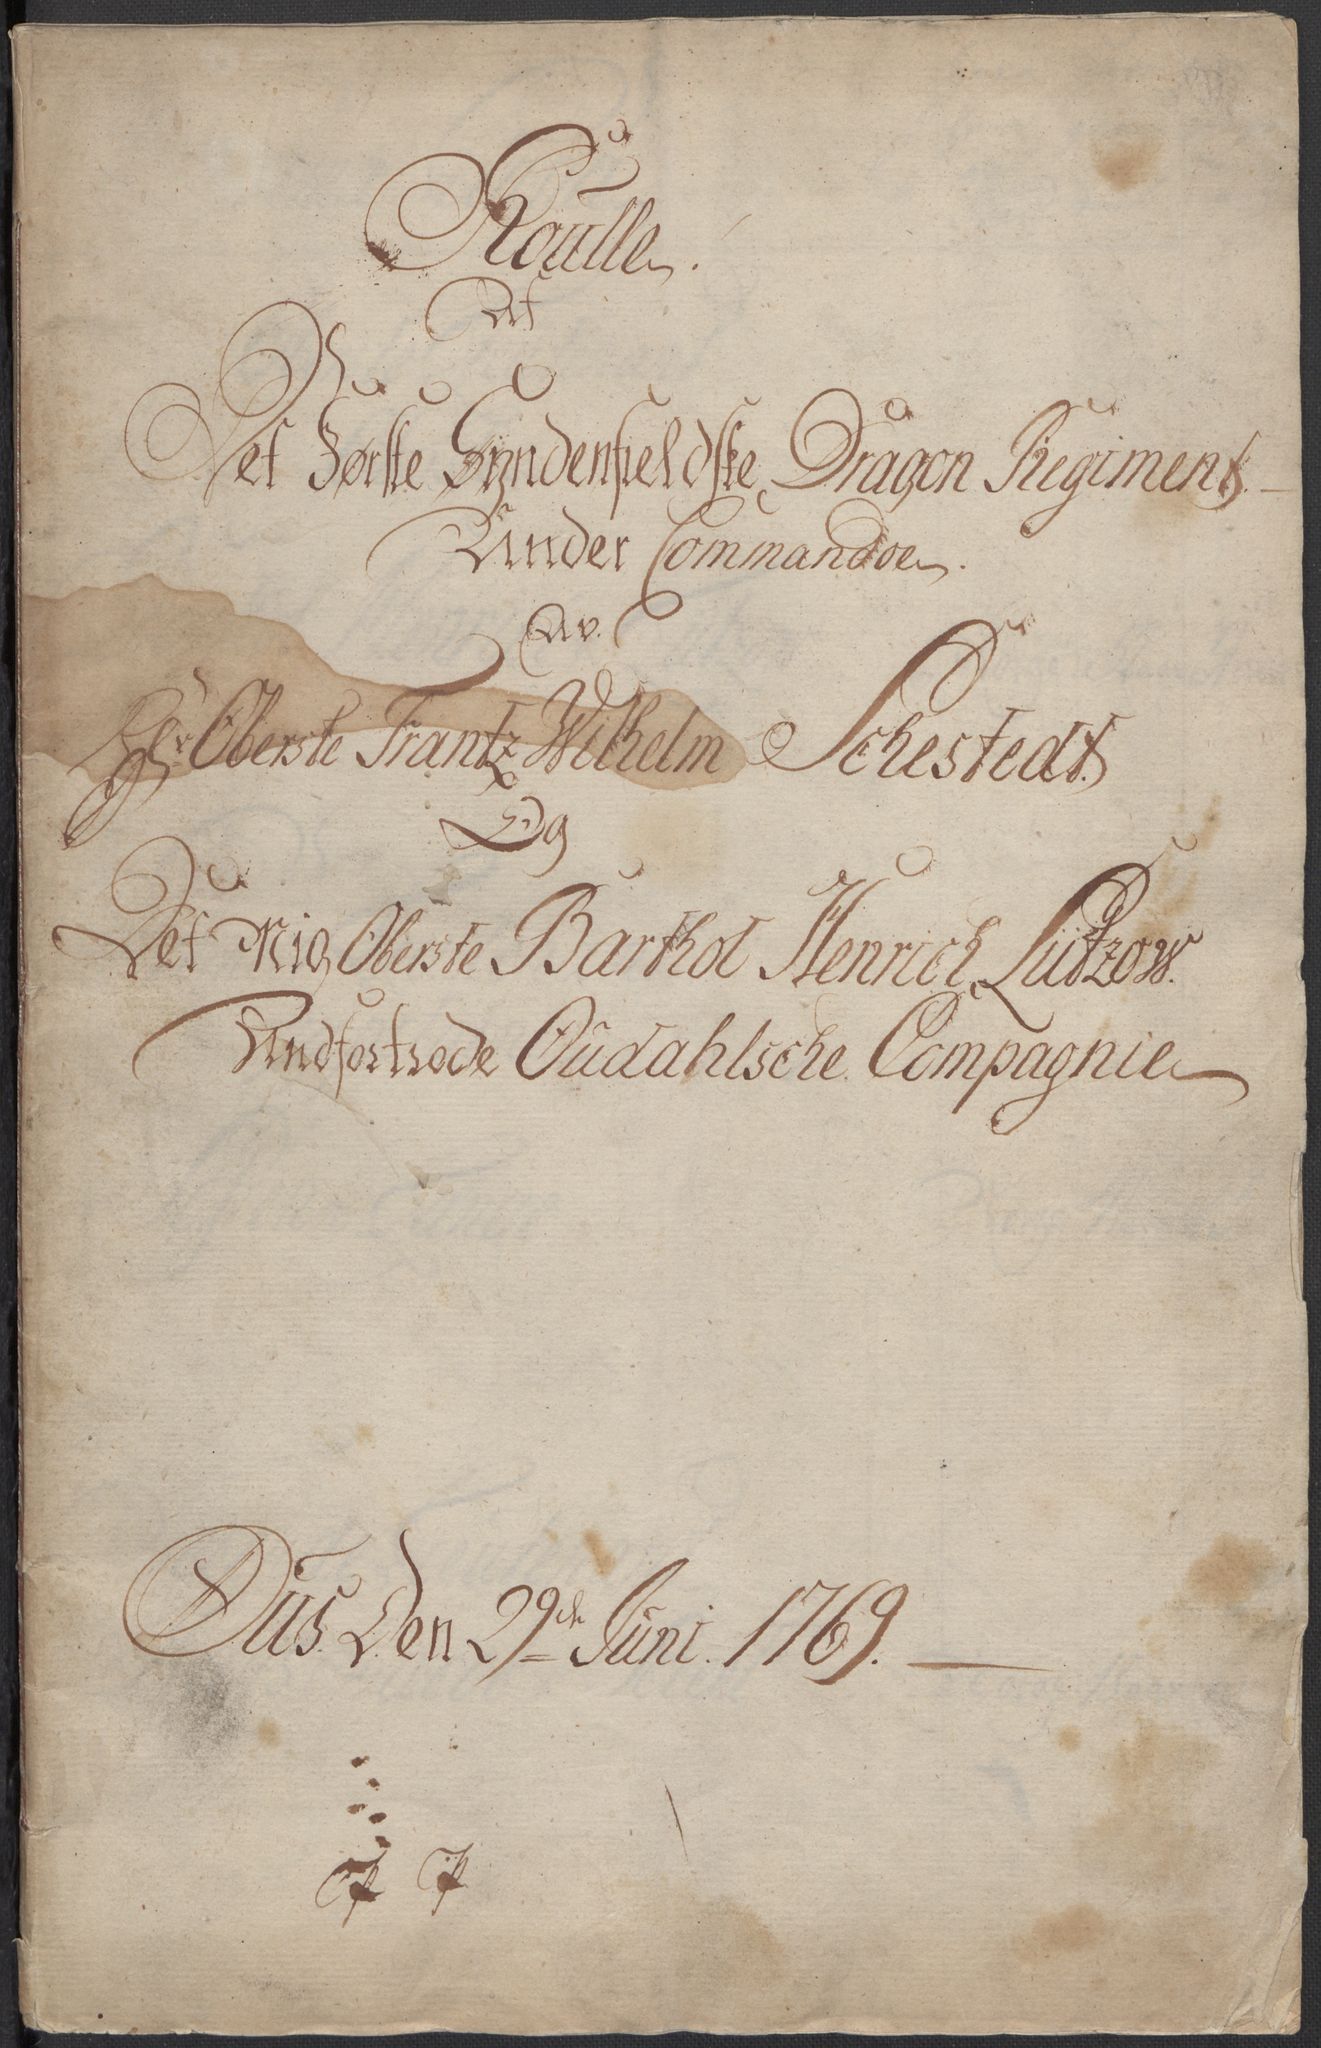 Roulle.
Af
Det Første Syndenfieldske Dragon Regiment.
Under Commandoe.
Av.
Hr Oberste Frantz Wilhelm Sehestedt.
Og
Det mig Oberste Barthol Henrich Lützow.
Andfortroede Oudahlsche Compagnie
Ous. Den 29de Juni. 1769.